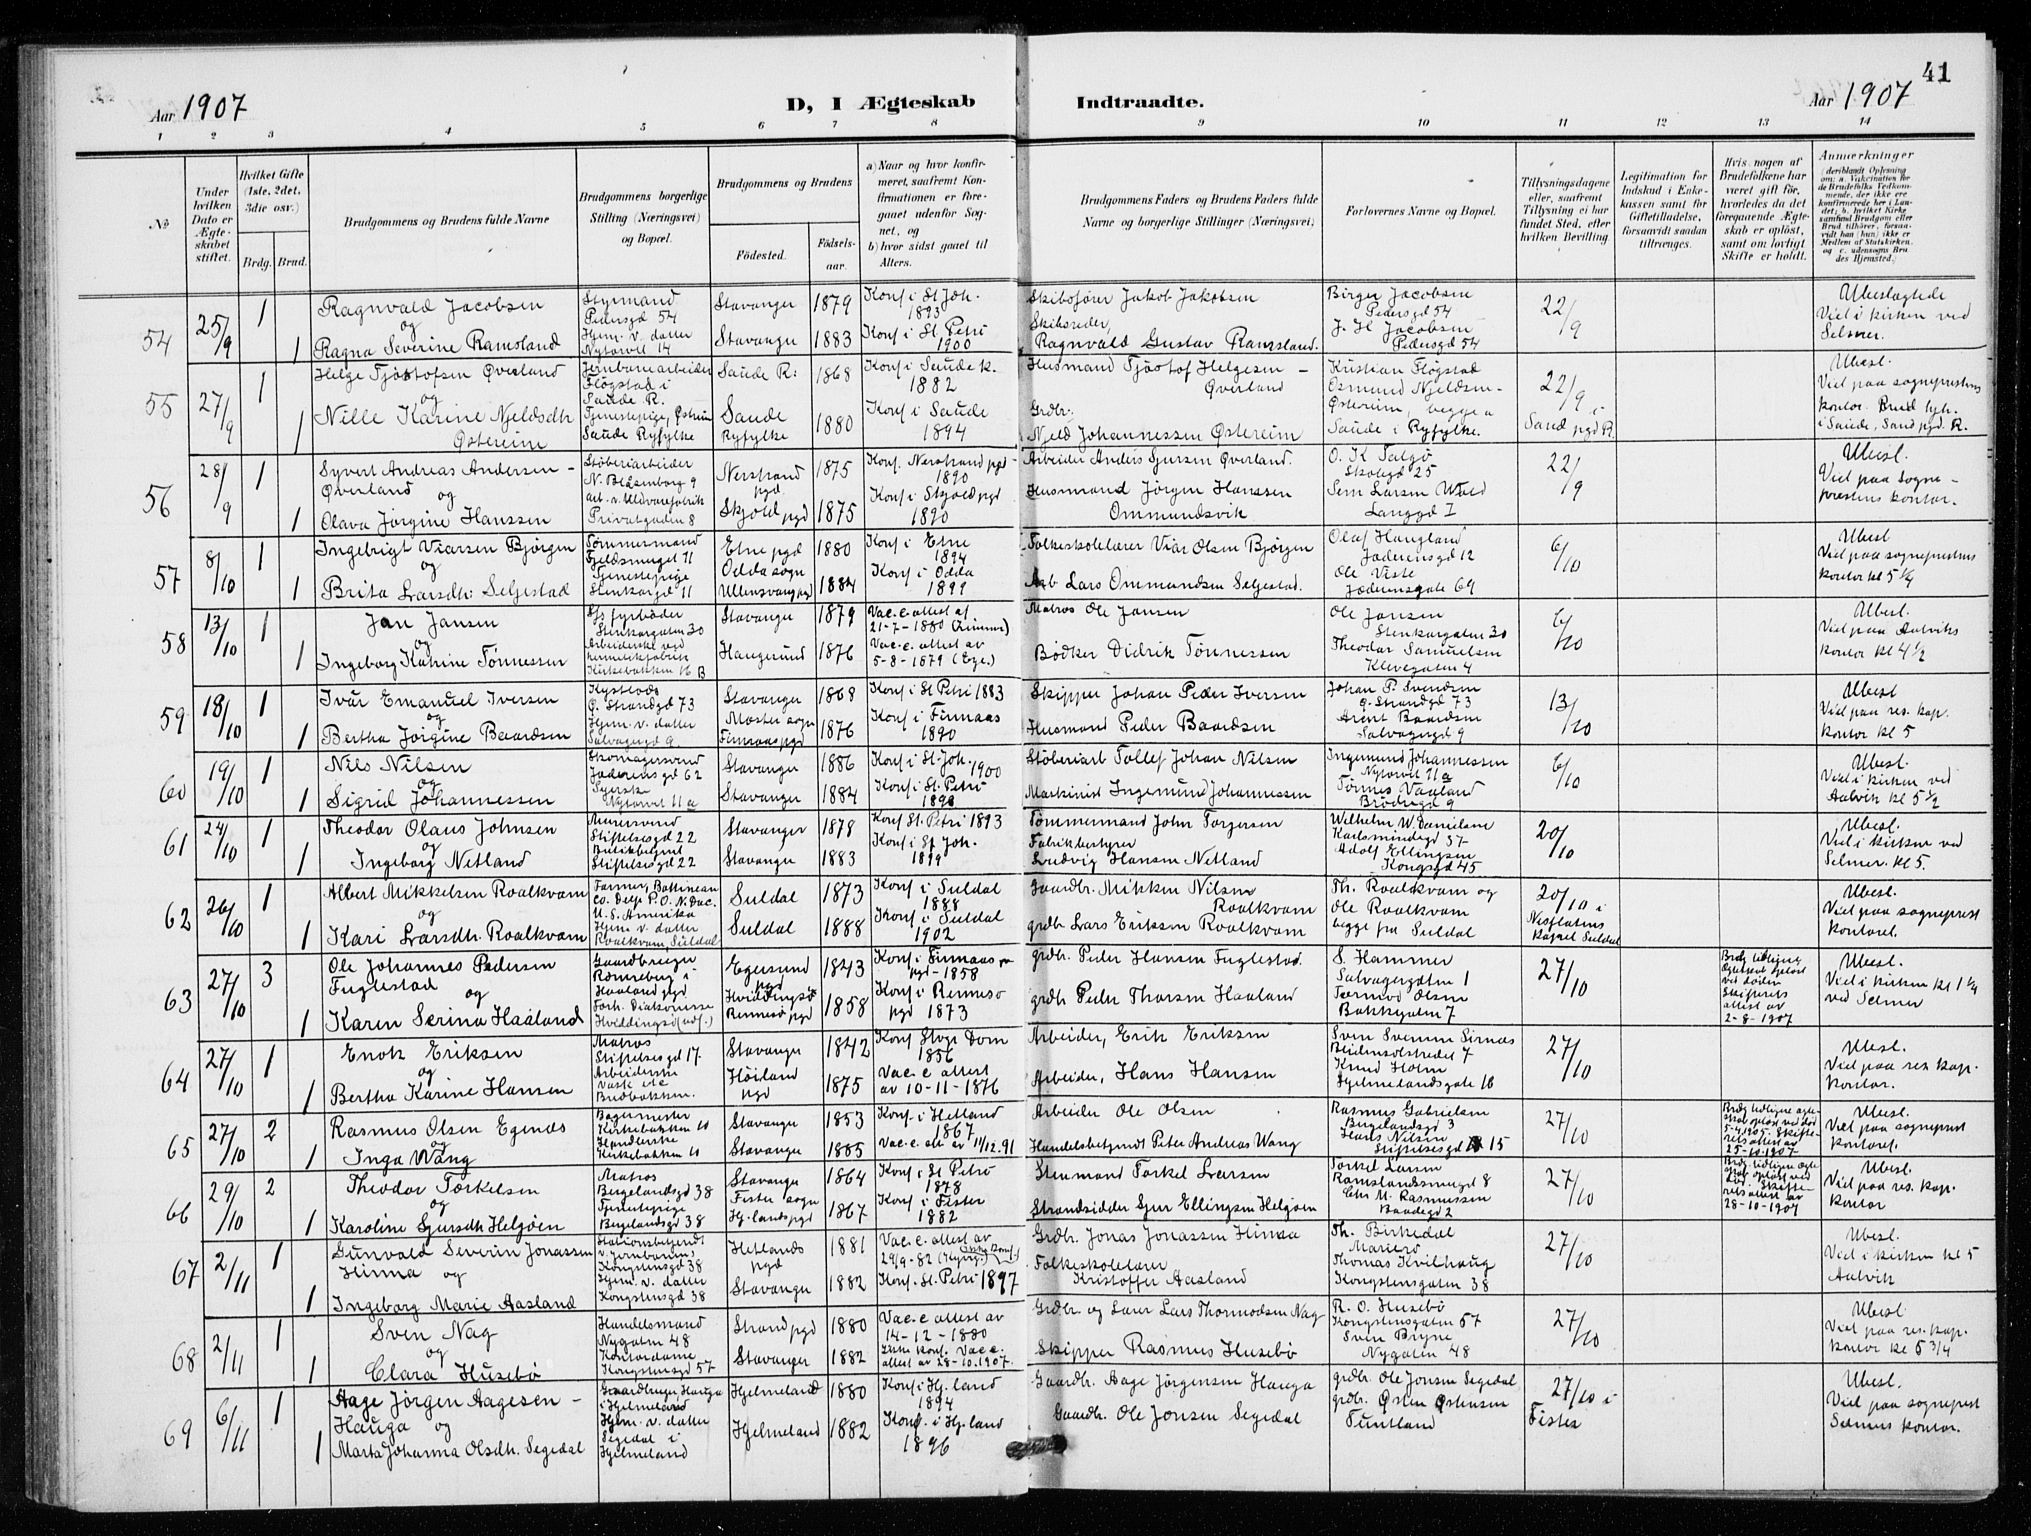 41
Aar 1907
D, I Ægteskab
Indtraadte.
Aar 1907
1 2 3 4 5 6 7 8 9 10 11 12 13 14
No
Under hvilken Dato er Ægteskabet stiftet.
Hvilket Gifte (1ste, 2det, 3die osv.)
Brdg. Brud.
Brudgommens og Brudens fulde Navne
Brudgommens borgerlige Stilling (Næringsvei) og Bopæl.
Brudgommens og Brudens
Fødested.
Fødselsaar.
a) Naar og hvor konfirmeret, saafremt Konfirmationen er foregaaet udenfor Sognet, og
b) hvor sidst gaaet til Alters.
Brudgommens Faders og Brudens Faders fulde Navne og borgerlige Stillinger (Næringsvei)
Forlovernes Navne og Bopæl.
Tillysningsdagene eller, saafremt Tillysning ei har fundet Sted, efter hvilken Bevilling.
Legitimation for Indskud i Enkekassen samt for Giftetilladelse, forsaavidt saadan tiltrænges.
Hvis nogen af Brudefolkene har været gift før, hvorledes da det foregaaende Ægteskab er opløst, samt om lovligt Skifte er holdt.
Anmerkninger
54 25/9 1 1
Ragnvald Jacobsen
og
Ragna Severine Ramsland
Styrmand
Pedersgd 54
Hjem. v. datter
Nytorvet 14
Stavanger 1879
Stavanger 1883
Konf i St Joh.
1893
Konf i St. Petri
1900
Skibsfører Jakob Jakobsen
Skibsreder,
Ragnvald Gustav Ramsland.
Birger Jacobsen
Pedersgd 54
J. H Jacobsen
Pedersgd 54
22/9
Ubeslægtede
Viel i kirken ved
Selmer.
55 27/9 1 1
Helge Tjøstofsen Øverland
og
Nille Karine Njeldsdtr
Østereim
Jernbanearbeider
Fløgstad i
Saude R.
Tjenestepige, Østreim
Saude Ryfylke
Saude R: 1868
Saude
Ryfylke 1880
Konf i Saude k.
1882
Konf i Saude
1894
Husmand Tjøstof Helgesen -
Øverland
Grdbr.
Njeld Johannessen Østereim
Kristian Fløgstad
Osmund Njeldsen-
Østereim, begge a
Saude i Ryfylke.
22/9 i
Sand pgd R.
Ubesl.
Viel paa sogneprestens
kontor. Brud hjh.
i Saude, Sand pgd. R.
56 28/9 1 1
Syvert Andreas Andersen -
Øverland
og
Olava Jørgine Hanssen
Støberiarbeider
N. Blåsenborg 9
arb. v. Uldvarefabrik
Privatgaden 8
Nerstrand
pgd 1875
Skjold pgd 1875
Konf. Nerstrand pgd -
1890
Konf i Skjold pgd
1890
Arbeider Anders Gjersen Øverland.
Husmand Jörgen Hanssen
Ommundsvik
O. K Talgø
Skolegd 25
Sem Larsen Wold
Langgd I
22/9
Ubesl.
Viel paa sogne-
prestens kontor.
57 8/10 1 1
Ingebrigt Viarsen Bjørgen
og
Brita Larsdtr: Seljestad
Tømmermand
Fjeldsmuget 11
Tjenestepige
Stenkargd 11
Etne pgd 1880
Odda sogn
Ullensvang pgd 1884
Konf i Etne
1894
Konf i Odda
1899
Folkeskolelærer Viar Olsen Bjørgen
Arb Lars Ommundsen Seljestad.
Olaf Haugland
Jæderensgd 12
Ole Viste
Jæderensgate 69
6/10
Ubesl
Viel paa sogneprestens
kontor kl 5 1/4
58 13/10 1 1
Jan Jansen
og
Ingeborg Katrine Tønnessen
Sfs fyrbøder
Stenkargaten 30
Arbeiderske ved
hermetikfabrik
Kirkebakken 16 B
Stavanger 1879
Haugesund 1876
Vac. c. attest af
21-7-1880
Vac. c. attest av
5-8-1879
Matros Ole Jansen
Bødker Didrik Tønnessen
Ole Jansen
Stenkargaten 30
Theodor Samuelsen
Klevegaten 4
6/10
Ubesl.
Viel paa Aalviks
kontor kl 4 1/2
59 18/10 1 1
Ivar Emanuel Iversen
og
Bertha Jørgine Baardsen
Kystlods
Ø. Strandgd 73
Hjem. v. datter
Salvagergd 9
Stavanger 1868
Moster sogn
Finnaas pgd 1876
Konf i St Petri 1883
Konf i Finnaas
1890
Skipper Johan Peder Iversen
Husmand Peder Baardsen
Johan P. Svendsen
Ø. Strandgd 73
Arent Baardsen
Salvagergd 9
13/10
Ubesl
Viel paa res. kap.
kontor kl 5
60 19/10 1 1
Nils Nilsen
og
Sigrid Johannessen
Skomagersvend
Jæderensgd 62
Syerske
Nytorvet 11 a
Stavanger 1886
Stavanger 1884
Konf i St. Joh.
1900
Konf i St. Petri
1898
Støberiarb Tollef Johan Nilsen
Maskinist Ingemund Johannessen
Ingemund Johannessen
Nytorvet 11 a
Tønnes Vaaland
Brødregd 9
6/10
Ubesl.
Viel i kirken ved
Aalvik kl 5 1/2
61 24/10 1 1
Theodor Olaus Johnsen
og
Ingeborg Netland
Murersvend
Stiftelsesgd 22
Butikbetjent
Stiftelsesgd 22
Stavanger 1878
Stavanger 1883
Konf St. Petri 1893
Konf i St Joh.
1899
Tømmermand John Torgersen
Fabrikbestyrer
Ludvig Hansen Netland
Wilhelm W. Danielsen
Karlsmindegd 57
Adolf Ellingsen
Kongsgd 45
20/10
Ubesl.
Viel i kirken ved
Selmer. kl 5.
62 26/10 1 1
Albert Mikkelsen Roalkvam
og
Kari Larsdtr. Roalkvam
Farmer, Bottineau
Co. Delp P.O. N. Dac.
U. S. Amerika
Hjem v. datter
Roalkvam, Suldal
Suldal 1873
Suldal 1888
Konf i Suldal
1888
Konf i Suldal
1902
Gaardbr. Mikkel Nilsen
Roalkvam
grdbr Lars Eriksen Roalkvam
Th. Roalkvam og
Ole Roalkvam
begge fra Suldal
20/10 i
Nesflatens
kapel Suldal
Ubesl.
Viel paa sogneprest
kontoret.
63 27/10 3 1
Ole Johannes Pedersen
Fuglestad
og
Karen Serina Haaland
Gaardbruger
Rønneberg i
Haaland pgd
Forh. Diakonisse
Hviddingsø (udf.)
Egersund
pgd 1843
Hviddingsø
Rennesø pgd 1858
Konf i Finnaas
pgd - 1858
Konf i Rennesø
pgd 1873
grdbr. Peder Hansen Fuglestad.
grdbr Peder Thorsen Haaland
S. Hammer
Salvagergaten 1
Tormod Olsen
Bakkegaten 7
27/10
Brdg tidligere
Ægteskab opløst
ved døden
Skifterets
attest av
2-8-1907
Ubesl.
Viel i kirken kl 1 1/4
ved Selmer
64 27/10 1 1
Enok Eriksen
og
Bertha Karine Hansen
Matros
Stiftelsesgd 17
Arbeiderske
Vaske etc
Budbakken
Stavanger 1842
Høiland
pgd 1875
Konf Stvgr Dom
1856
Vac. c attest
av 10-11-1876
Arbeider, Erik Eriksen
Arbeider, Hans Hansen
Sven Svensen Sirnæs
Bleidensolstredet 7
Knud Holm
Hjelmelandsgate 16
27/10
Ubesl.
Viel paa res kap.
kontor.
65 27/10 2 1
Rasmus Olsen Egenæs
og
Inga Wang
Bagermester
Kirkebakken 10
Handlerske
Kirkebakken 10
Stavanger 1853
Stavanger 1885
Konf. i Hetland
1867
Vac. c. att av 11/12.91
Arbeider Ole Olsen
Handelsbetjendt Peter Andreas Wang
Rasmus Gabrielsen
Bergelandsgd 3
Hans Nilsen
Stiftelsesgd 15
27/10
Brdg tidligere ægte-
skab opløst ved død
5-4.1905. Skifte-
rets attest av
25-10.1907
Ubesl.
Viel paa sogneprest
kontoret.
66 29/10 2 1
Theodor Torkelsen
og
Karoline Gjersdtr. Helgøen
Matros
Bergelandsgd 38
Tjenestepige
Bergelandsgd 38
Stavanger 1864
Fister sogn
Hj.lands pgd 1867
Konf i St Petri
1878
Konf i Fister
1882
Stenmand Torkel Larsen
Strandsidder Gjer Ellingsen Helgøen
Torkel Larsen
Ramslandsmugd 8
Chr M. Rasmussen
Baadegd 2
27/10
Brdg tidligere ægte-
skab opløst ved
død. Skifte-
rets attest av
28-10-1907
Ubesl.
Viel paa res. kap.
kontor
67 2/11 1 1
Gunvald Severin Jonassen
Hinna og
Ingeborg Marie Aasland
Stationsbetjendt
v. Jernbanen,
Kongstensgd 38
Hjem. v. datter
Kongstensgd 38
Hetlands
pgd 1881
Stavanger 1882
Vac. c. attest av
29/9-82
Konf. St. Petri 1897
Grdbr. Jonas Jonassen Hinna
Folkeskolelærer
Kristoffer Aasland
Th. Birkedal
Mariero
Thomas Kvilhaug
Kongstensgaten 38
27/10
Ubesl.
Viel i kirken kl 5
Aalvik
68 2/11 1 1
Sven Nag
og
Clara Husebø
Handelsmand
Nygaten 48
Kontordame
Kongstensgd 57
Strand pgd 1880
Stavanger 1882
Vac. c. attest av
14-12-1880
Ikke konf. Vac c.
attest av 28-10.1907.
Grdbr. og Lærer Lars Thormodsen Nag
Skipper Rasmus Husebø
R. O. Husebø
Kongstensgaten 57
Sven Bryne
Nygaten 48
27/10
Ubesl
Viel paa res. kap.
kontor kl 5 3/4
69 6/11 1 1
Aage Jørgen Aagesen -
Hauga og
Marta Johanna Olsdtr. Segedal
Gaardbruger Hauga
i Hjelmeland
Hjem. v. datter
Segedal i
Hjelmeland
Hjelmeland 1880
Hjelmeland 1882
Konf i Hj. land
1894
Konf. i Hj. land
1896
Gaardbr. Aage Jørgensen Hauga
Gaardbr. Ole Jonsen Segedal
grdbr. Ole Jonsen Segedal,
grdbr. Østen Østensen
Tuntland
27/10 i
Fister
Ubesl.
Viel paa sogneprest
Selmers kontor.